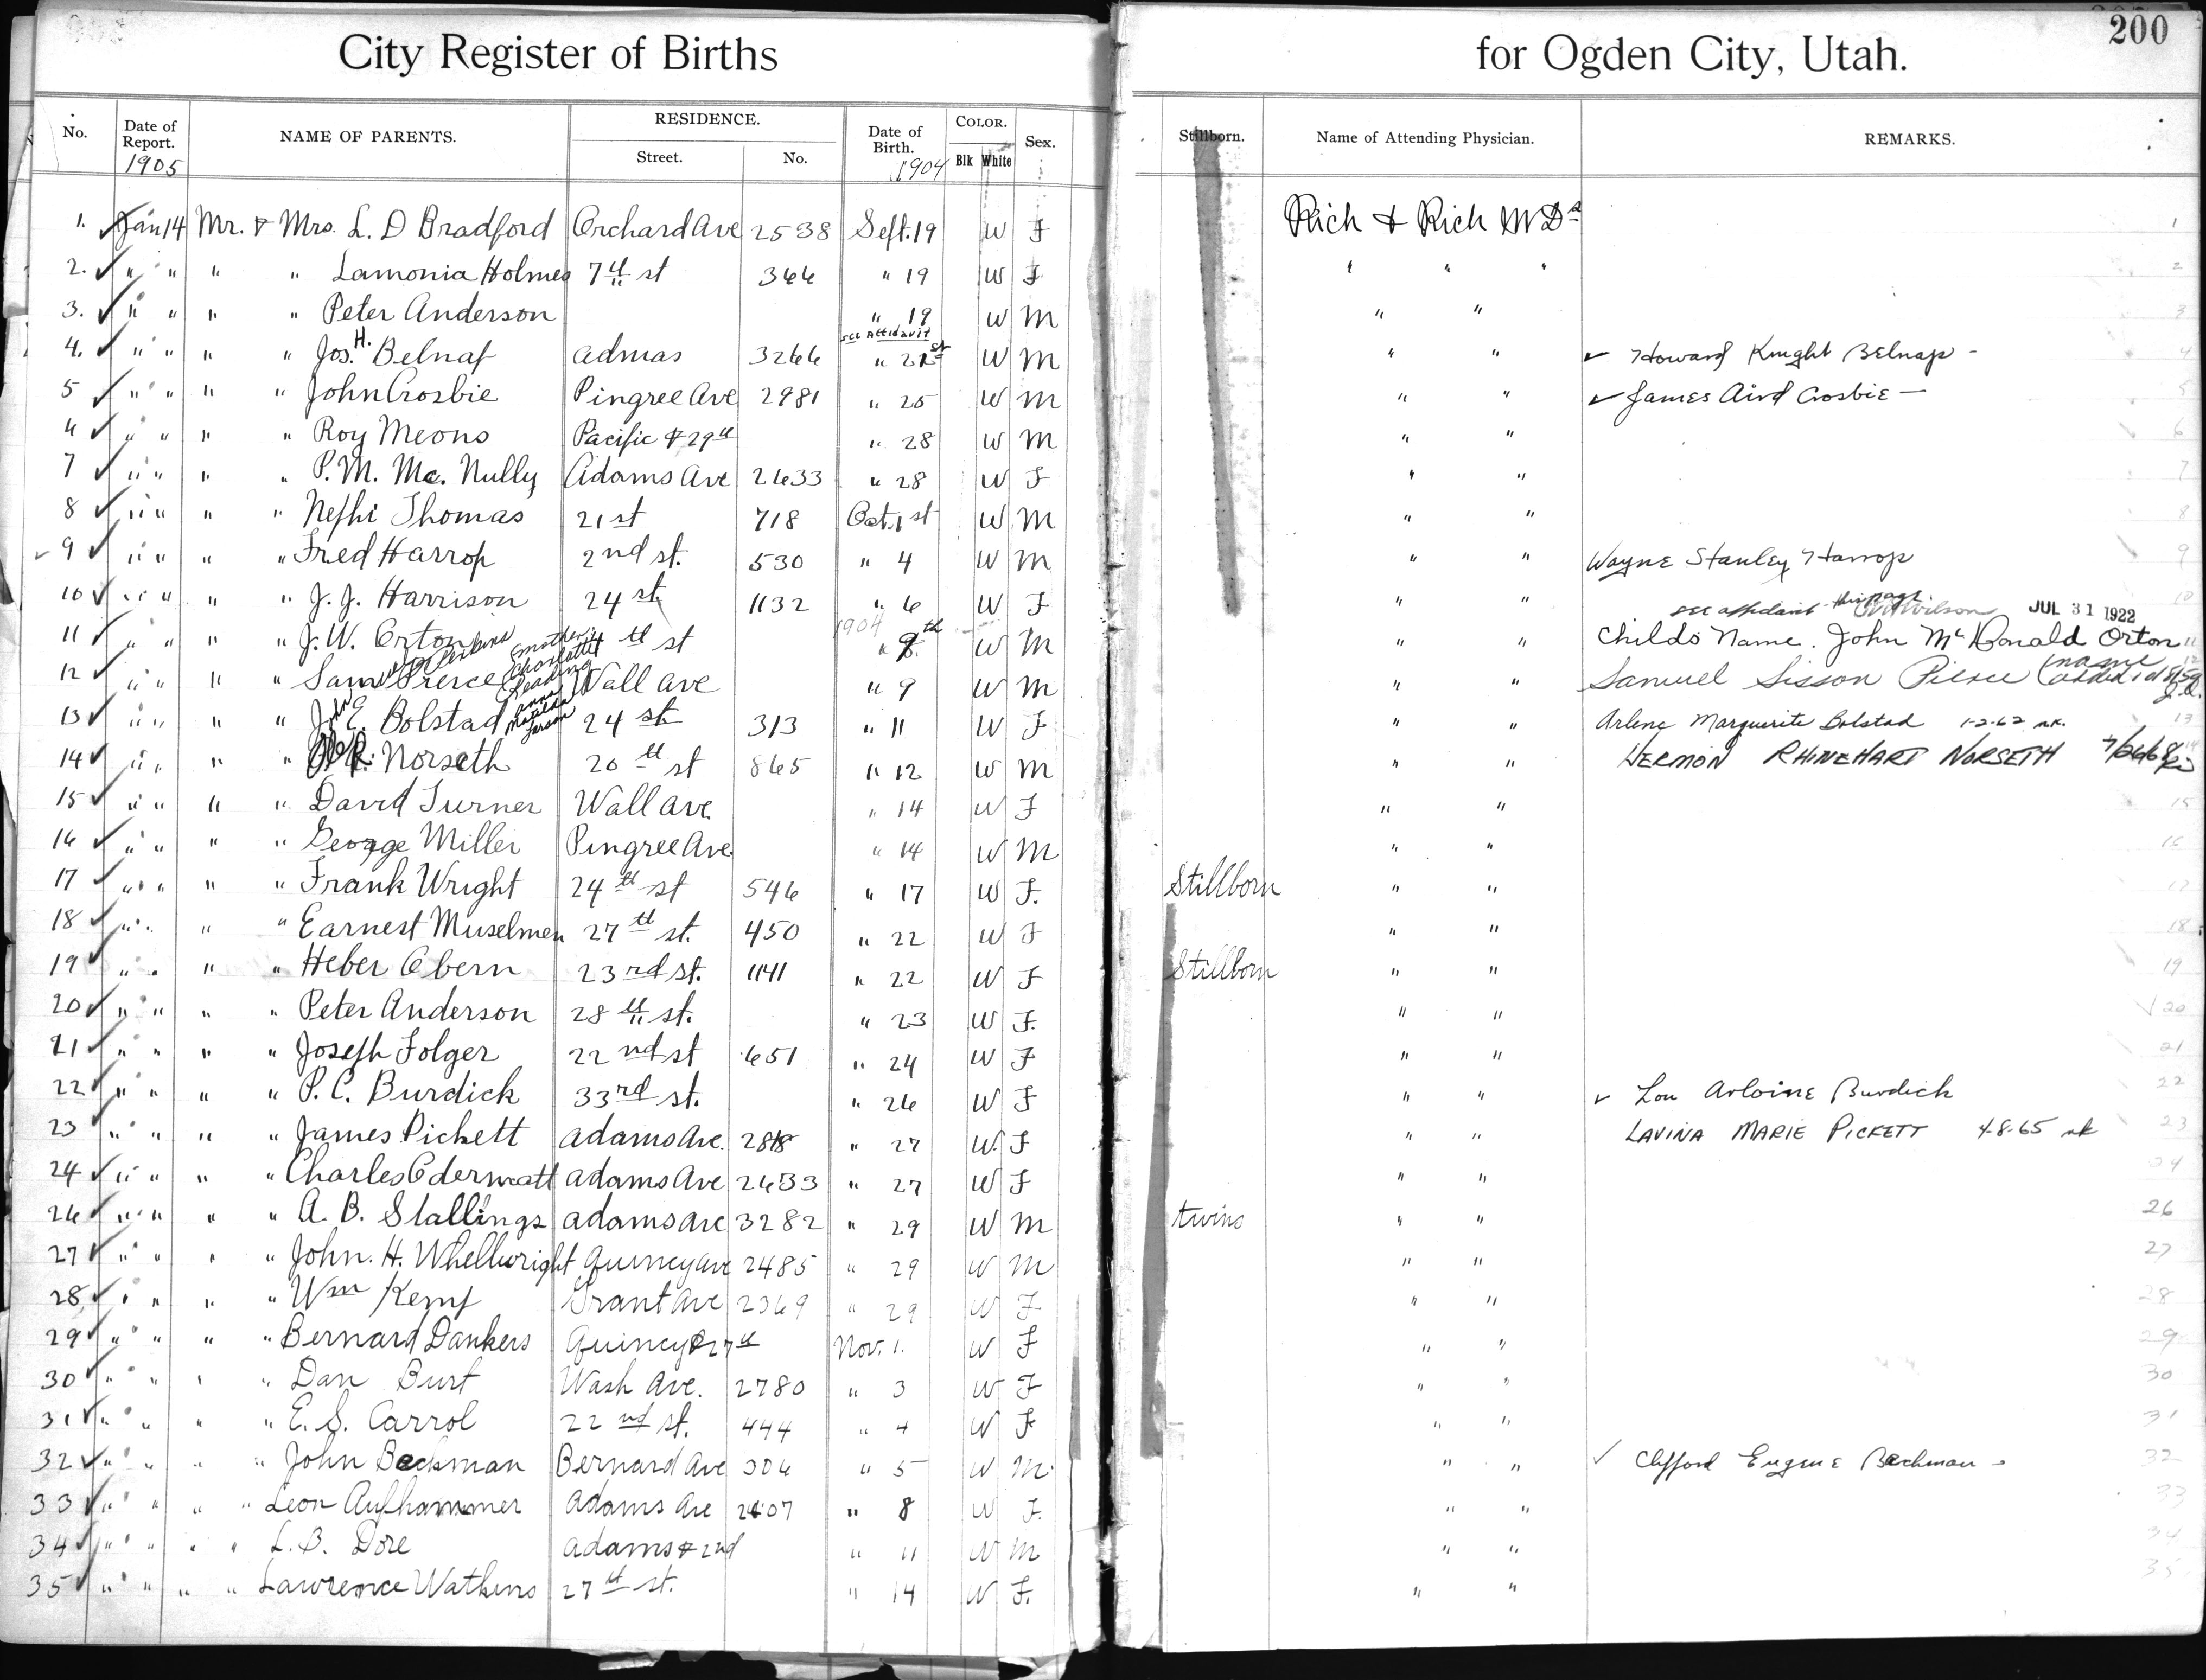 City Register of Births for Ogden City, Utah. 200
No. Date of Report. NAME OF PARENTS. RESIDENCE. Street. No. Date of Birth. COLOR. Blk White Sex. Stillborn. Name of Attending Physician. REMARKS.
1905 1904
1. Jan 14 Mr. & Mrs. L. D Bradford Orchard Ave 2538 Sept. 19 W F Rich & Rich M Ds 1
2. " " " " Lamonia Holmes 7th st 366 " 19 W F " " " 2
3. " " " " Peter Anderson " 19 W M " " 3
see Affidavit
4. " " " " Jos. H. Belnap Admas 3266 " 21st W M " " Howard Knight Belnap - 4
5 " " " " John Crosbie Pingree Ave 2981 " 25 W M " " James Aird Crosbie - 5
6 " " " " Roy Meons Pacific & 29th " 28 W M " " 6
7 " " " " P. M. Mc. Nully Adams Ave 2633 " 28 W F " " 7
8 " " " " Nephi Thomas 21st 718 Oct. 1st W M " " 8
9 " " " " Fred Harrop 2nd st. 530 " 4 W M " " Wayne Stanley Harrop 9
10 " " " " J. J. Harrison 24 st 1132 " 6 W F " " 10
see affidavit this page. Wilson JUL 31 1922
11 " " " " J. W. Orton th st 1904 " 9th W M " " Childs Name. John McDonald Orton 11
mother: Charlotte Reading
12 " " " " Sam Pierce Wall Ave " 9 W M " " Samuel Sisson Pierce (name added
Anna Matilda Larson
13 " " " " John E. Bolstad 24 st 313 " 11 W F " " Arlene Marguerite Bolstad 1-2-62 nk. 13
14 " " " " Norseth 20th st 865 " 12 W M " " HERMON RHINEHART NORSETH 14
15 " " " " David Turner Wall Ave. " 14 W F " " 15
16 " " " " George Miller Pingree Ave. " 14 W M " " 16
17 " " " " Frank Wright 24th st 546 " 17 W F. Stillborn " " 17
18 " " " " Earnest Muselmen 27th st. 450 " 22 W F " " 18
19 " " " " Heber Obern 23rd st. 1141 " 22 W F Stillborn " " 19
20 " " " " Peter Anderson 28th st. " 23 W F. " " 20
21 " " " " Joseph Folger 22nd st 651 " 24 W F " " 21
22 " " " " P. C. Burdick 33rd st. " 26 W F " " Lou Arloine Burdick 22
23 " " " " James Pickett Adams Ave. 2818 " 27 W. F " " LAVINA MARIE PICKETT 4-8-65 nk 23
24 " " " " Charles Odermatt Adams Ave 2633 " 27 W F " " 24
26 " " " " A. B. Stallings Adams Ave 3282 " 29 W M twins " " 26
27 " " " " John. H. Whellwright Quincy Ave 2485 " 29 W M " " 27
28 " " " " Wm Kemp Grant Ave 2369 " 29 W F " " 28
29 " " " " Bernard Dankers Quincy & 27th Nov. 1. W F " " 29
30 " " " " Dan Burt Wash Ave. 2780 " 3 W F " " 30
31 " " " " E. S. Carrol 22nd st. 444 " 4 W F " " 31
32 " " " " John Backman Bernard Ave 306 " 5 W M. " " Clifford Eugene Bachman 32
33 " " " " Leon Aufhammer Adams Ave 2607 " 8 W F. " " 33
34 " " " " L. B. Dore Adams & 2nd " 11 W M " " 34
35 " " " " Lawrence Watkins 27th st. " 14 W F. " " 35